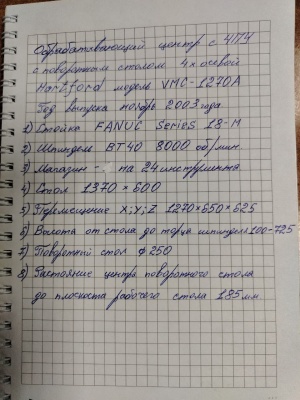 Обрабатывающий центр с ЧПУ
с поворотным столом 4х осевой
Hartford модель VMC-1270A
Год выпуска ноябрь 2003 года
1) Стойка FANUC Series 18-M
2) Шпиндель BT40 8000 об/мин.
3) Магазин - на 24 инструмента
4) Стол 1370 × 600
5) Перемещение X;Y;Z 1270×650×625
6) Высота от стола до торца шпинделя 100-725
7) Поворотный стол ϕ250
8) Расстояние центра поворотного стола
до плоскости рабочего стола 185 мм